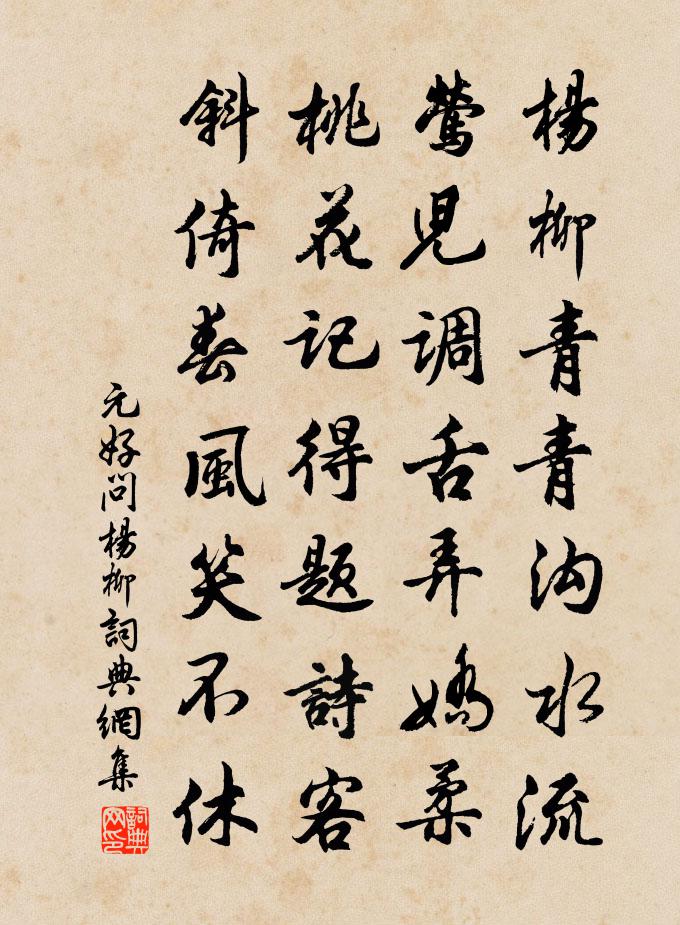 楊柳青青沟水流
鶯児調舌弄嬌柔
桃花記得题詩客
斜倚春風笑不休
元好问楊柳詞典網集
詞典网印